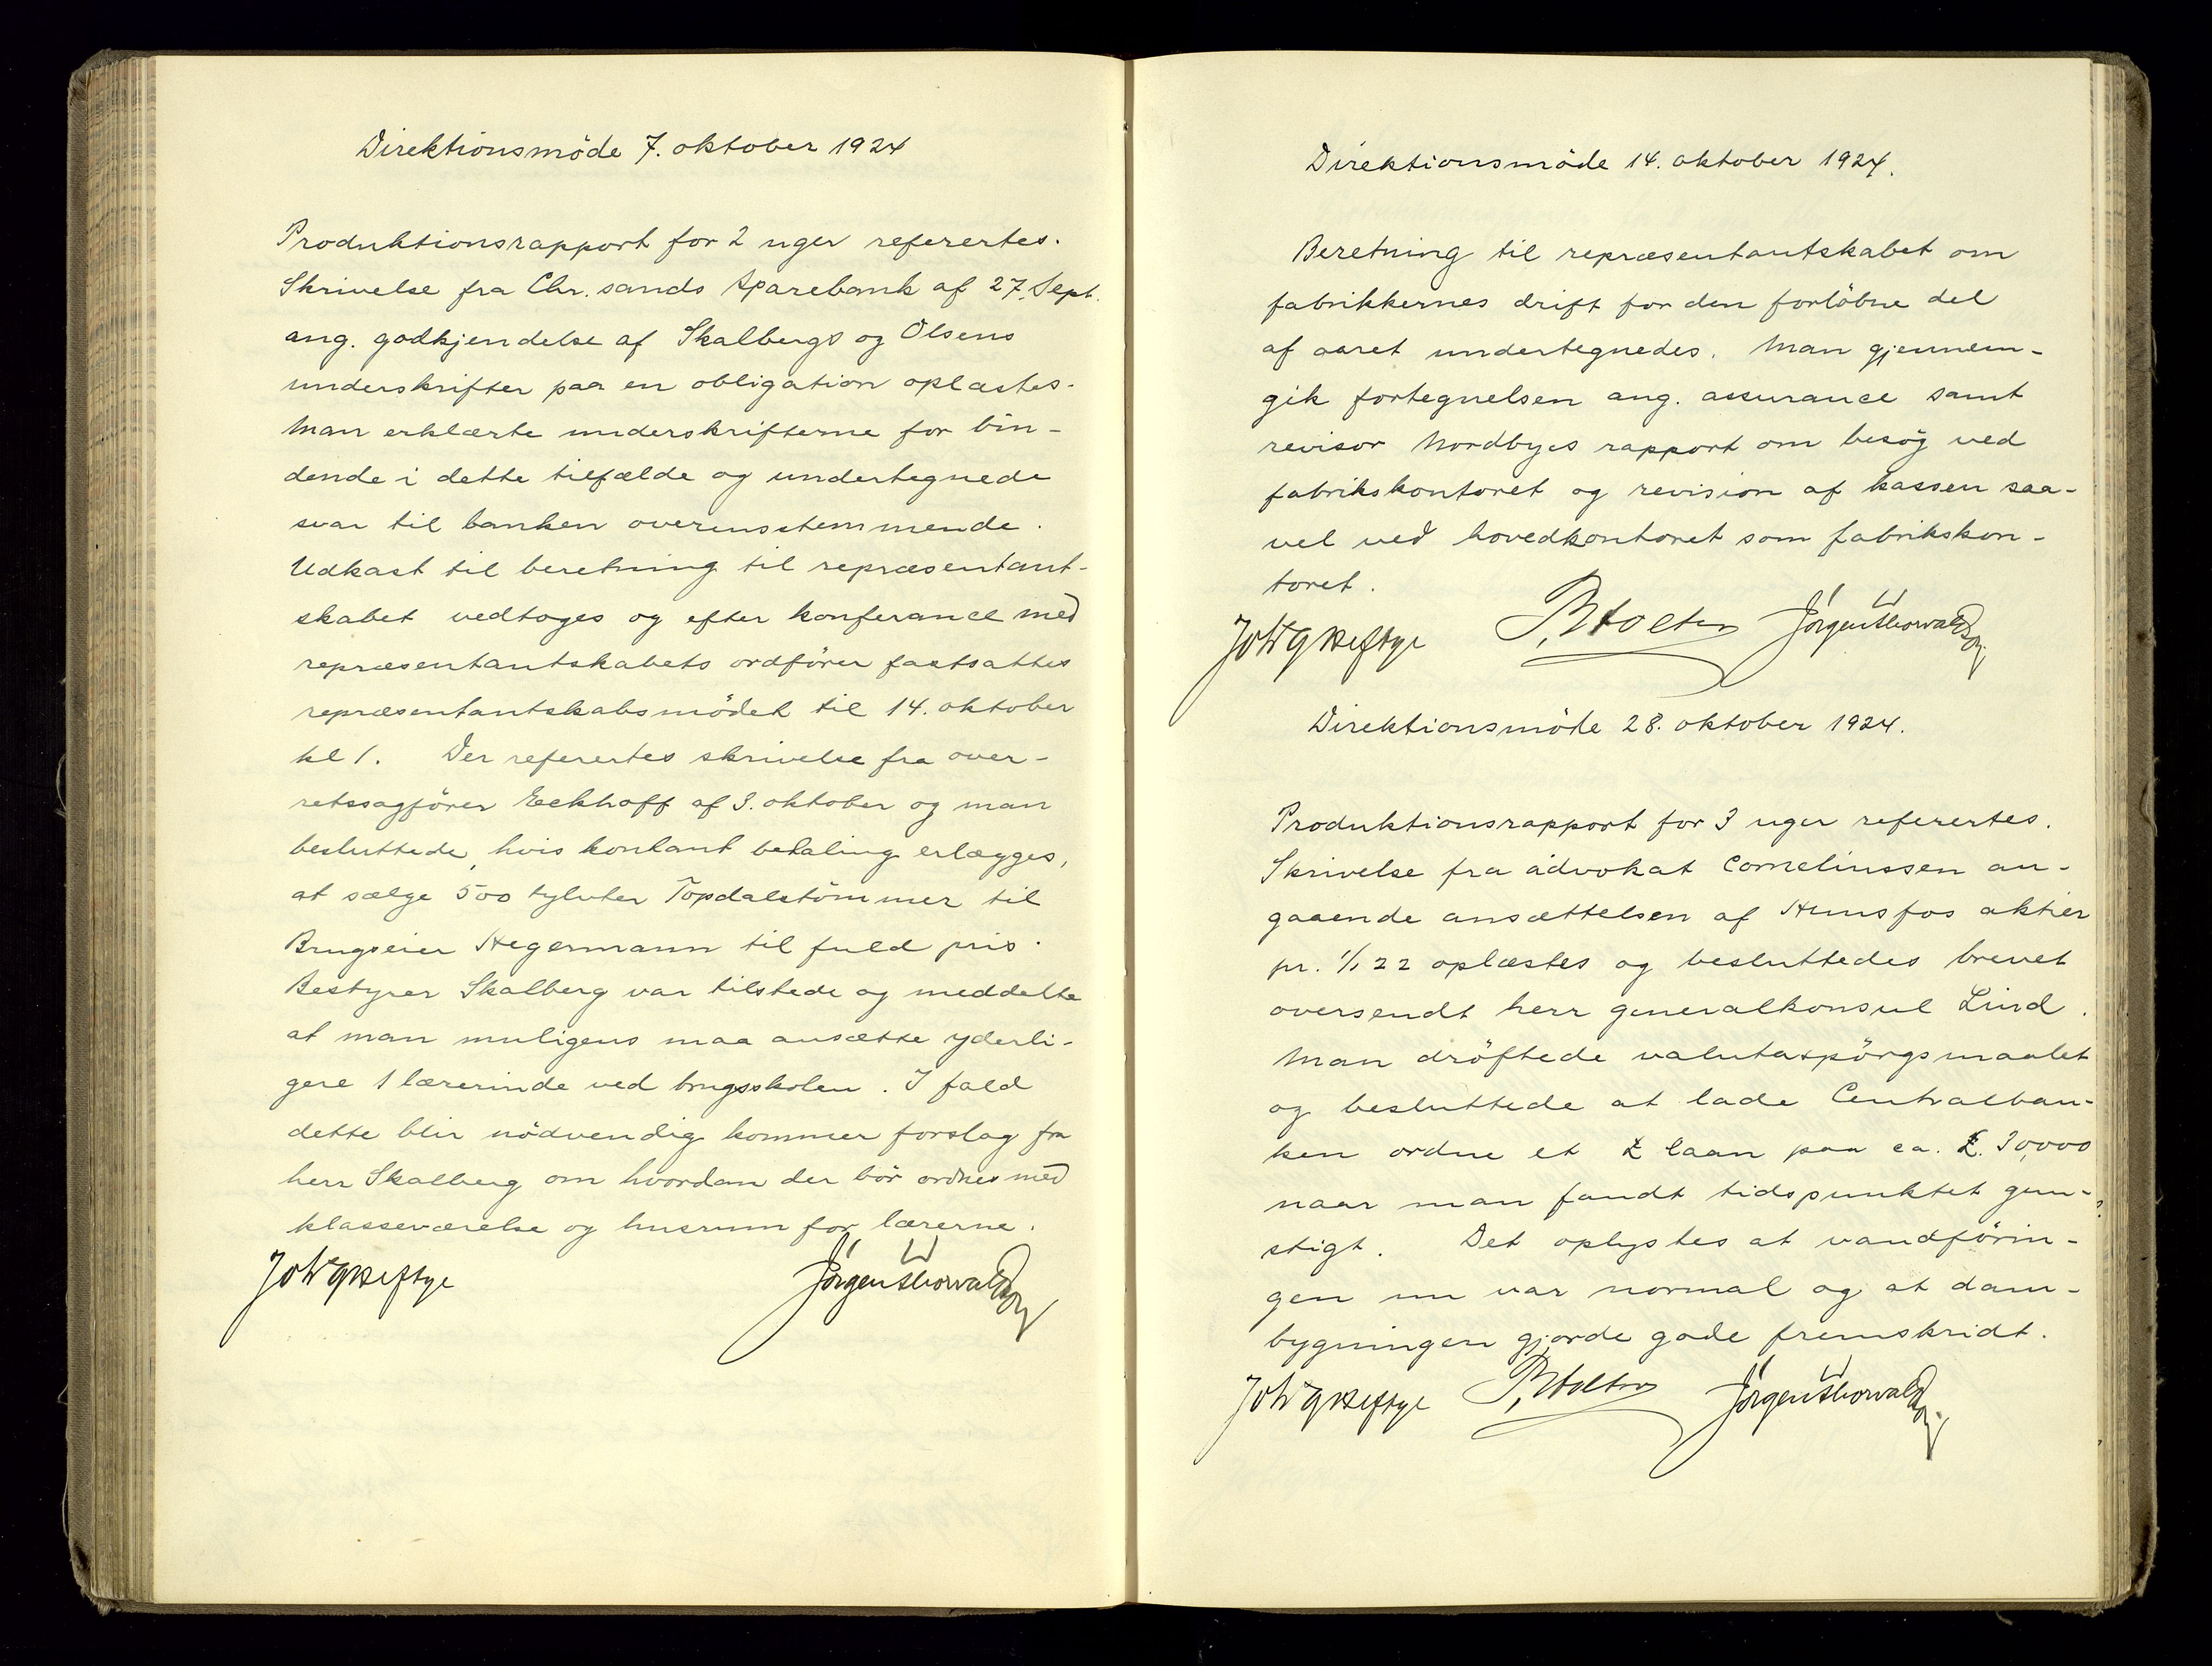 Direktionsmöde 7. oktober 1924
Produktionsrapport for 2 uger referertes.
Skrivelse fra Chr.sands Sparebank af 27. Sept.
ang. godkjendelse af Skalbergs og Olsens
underskrifter paa en obligation oplæstes.
Man erklærte underskrifterne for bin-
dende i dette tilfælde og undertegnede
svar til banken overensstemmende.
Udkast til beretning til repræsentant-
skabet vedtoges og efter konferance med
repræsentantskabets ordförer fastsattes
repræsentantskabsmödet til 14. oktober
kl 1. Der referertes skrivelse fra over-
retssagförer Eckhoff af 3. oktober og man
besluttede, hvis kontant betaling erlægges,
at sælge 500 tylvter Topdalstömmer til
Brugseier Hegermann til fuld pris.
Bestyrer Skalberg var tilstede og meddelte
at man muligens maa ansætte yderli-
gere 1 lærerinde ved brugsskolen. I fald
dette blir nödvendig kommer forslag fra
herr Skalberg om hvordan der bör ordnes med
klasseværelse og husrum for lærerne.
Joh Heftye Jörgen Thorvaldson
Direktionsmöde 14. oktober 1924.
Beretning til repræsentantskabet om
fabrikkernes drift for den forløbne del
af aaret undertegnedes. Man gjennem-
gik fortegnelsen ang. assurance samt
revisor Nordbyes rapport om besög ved
fabrikskontoret og revision af kassen saa-
vel ved hovedkontoret som fabrikskon-
toret.
Joh Heftye Jörgen Thorvaldson
Direktionsmöte 28. oktober 1924.
Produktionsrapport for 3 uger referertes.
Skrivelse fra advokat Corneliussen an-
gaaende ansættelsen af Hunsfos aktier
pr. 1/1 22 oplæstes og besluttedes brevet
oversendt herr generalkonsul Lind.
Man dröftede valutaspörgsmaalet
og besluttede at lade Centralban-
ken ordne et £ laan paa ca. £. 30,000
naar man fandt tidspunktet gun-
stigt. Det oplystes at vandförin-
gen nu var normal og at dam-
bygningen gjorde gode fremskridt.
Joh Heftye Jörgen Thorvaldson